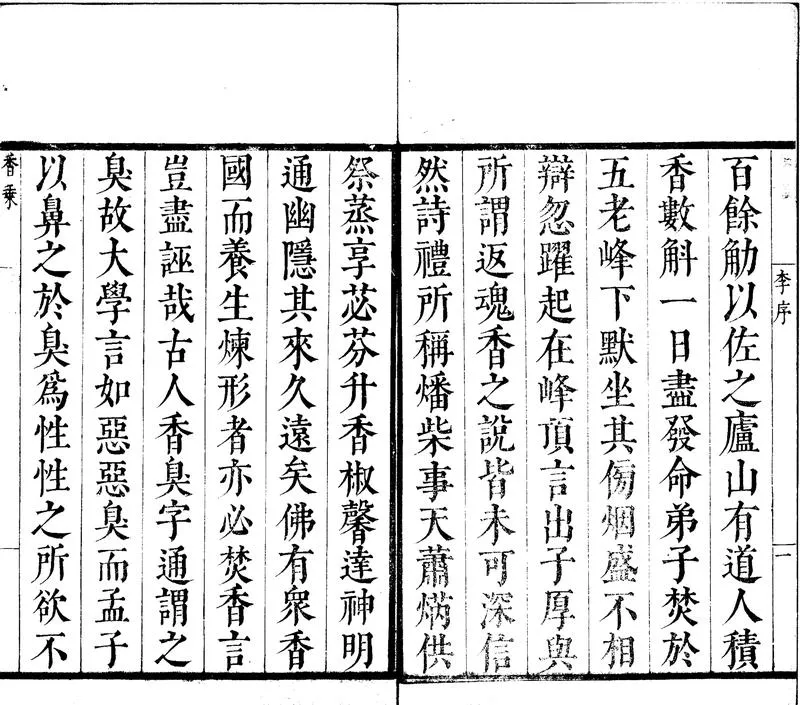 李序
一
百餘觔以佐之廬山有道人積
香數斛一日盡發命弟子焚於
五老峰下默坐其傍烟盛不相
辯忽躍起在峰頂言出子厚與
所謂返魂香之說皆未可深信
然詩禮所稱燔柴事天蕭焫供
祭蒸享苾芬升香椒馨達神明
通幽隱其來久遠矣佛有衆香
國而養生煉形者亦必焚香言
豈盡誣哉古人香臭字通謂之
臭故大學言如惡惡臭而孟子
以鼻之於臭爲性性之所欲不
香乗